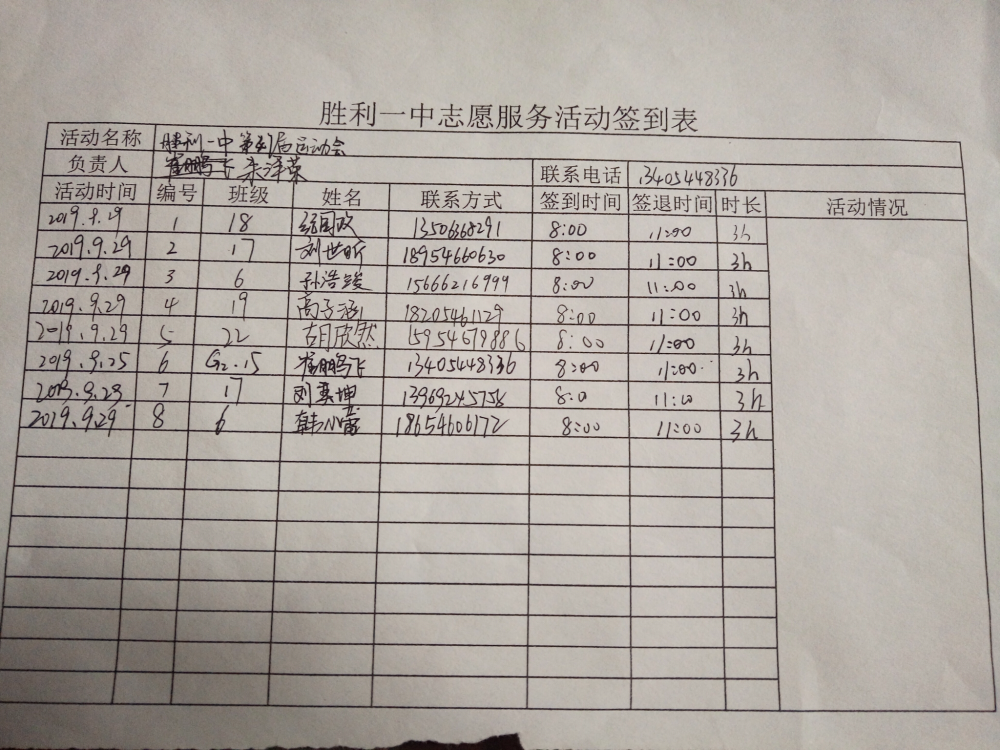 胜利一中志愿服务活动签到表
活动名称 胜利一中第 届运动会
负责人 崔鹏飞 朱泽荣 联系电话 13405448336
活动时间 编号 班级 姓名 联系方式 签到时间 签退时间 时长 活动情况
2019.9.29 1 18 13506368291 8:00 11:00 3h
2019.9.29 2 17 刘世昕 18954660630 8:00 11:00 3h
2019.9.29 3 6 孙浩竣 15666216999 8:00 11:00 3h
2019.9.29 4 19 高子涵 18205461129 8:00 11:00 3h
2019.9.29 5 22 胡欣然 15954679886 8:00 11:00 3h
2019.9.25 6 G2.15 崔鹏飞 13405448336 8:00 11:00 3h
7 17 坤 13969245758 8:0 11:0 3h
2019.9.29 8 6 韩小蕾 18654606172 8:00 11:00 3h